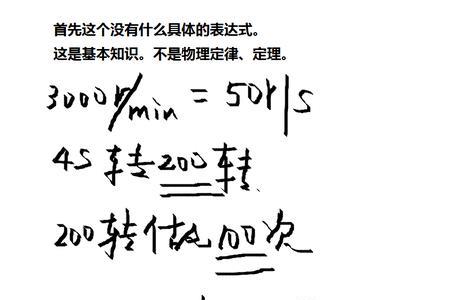 首先这个没有什么具体的表达式。
这是基本知识。不是物理定律、定理。
3000r/min = 50r/s
4S转200转
200转做100次